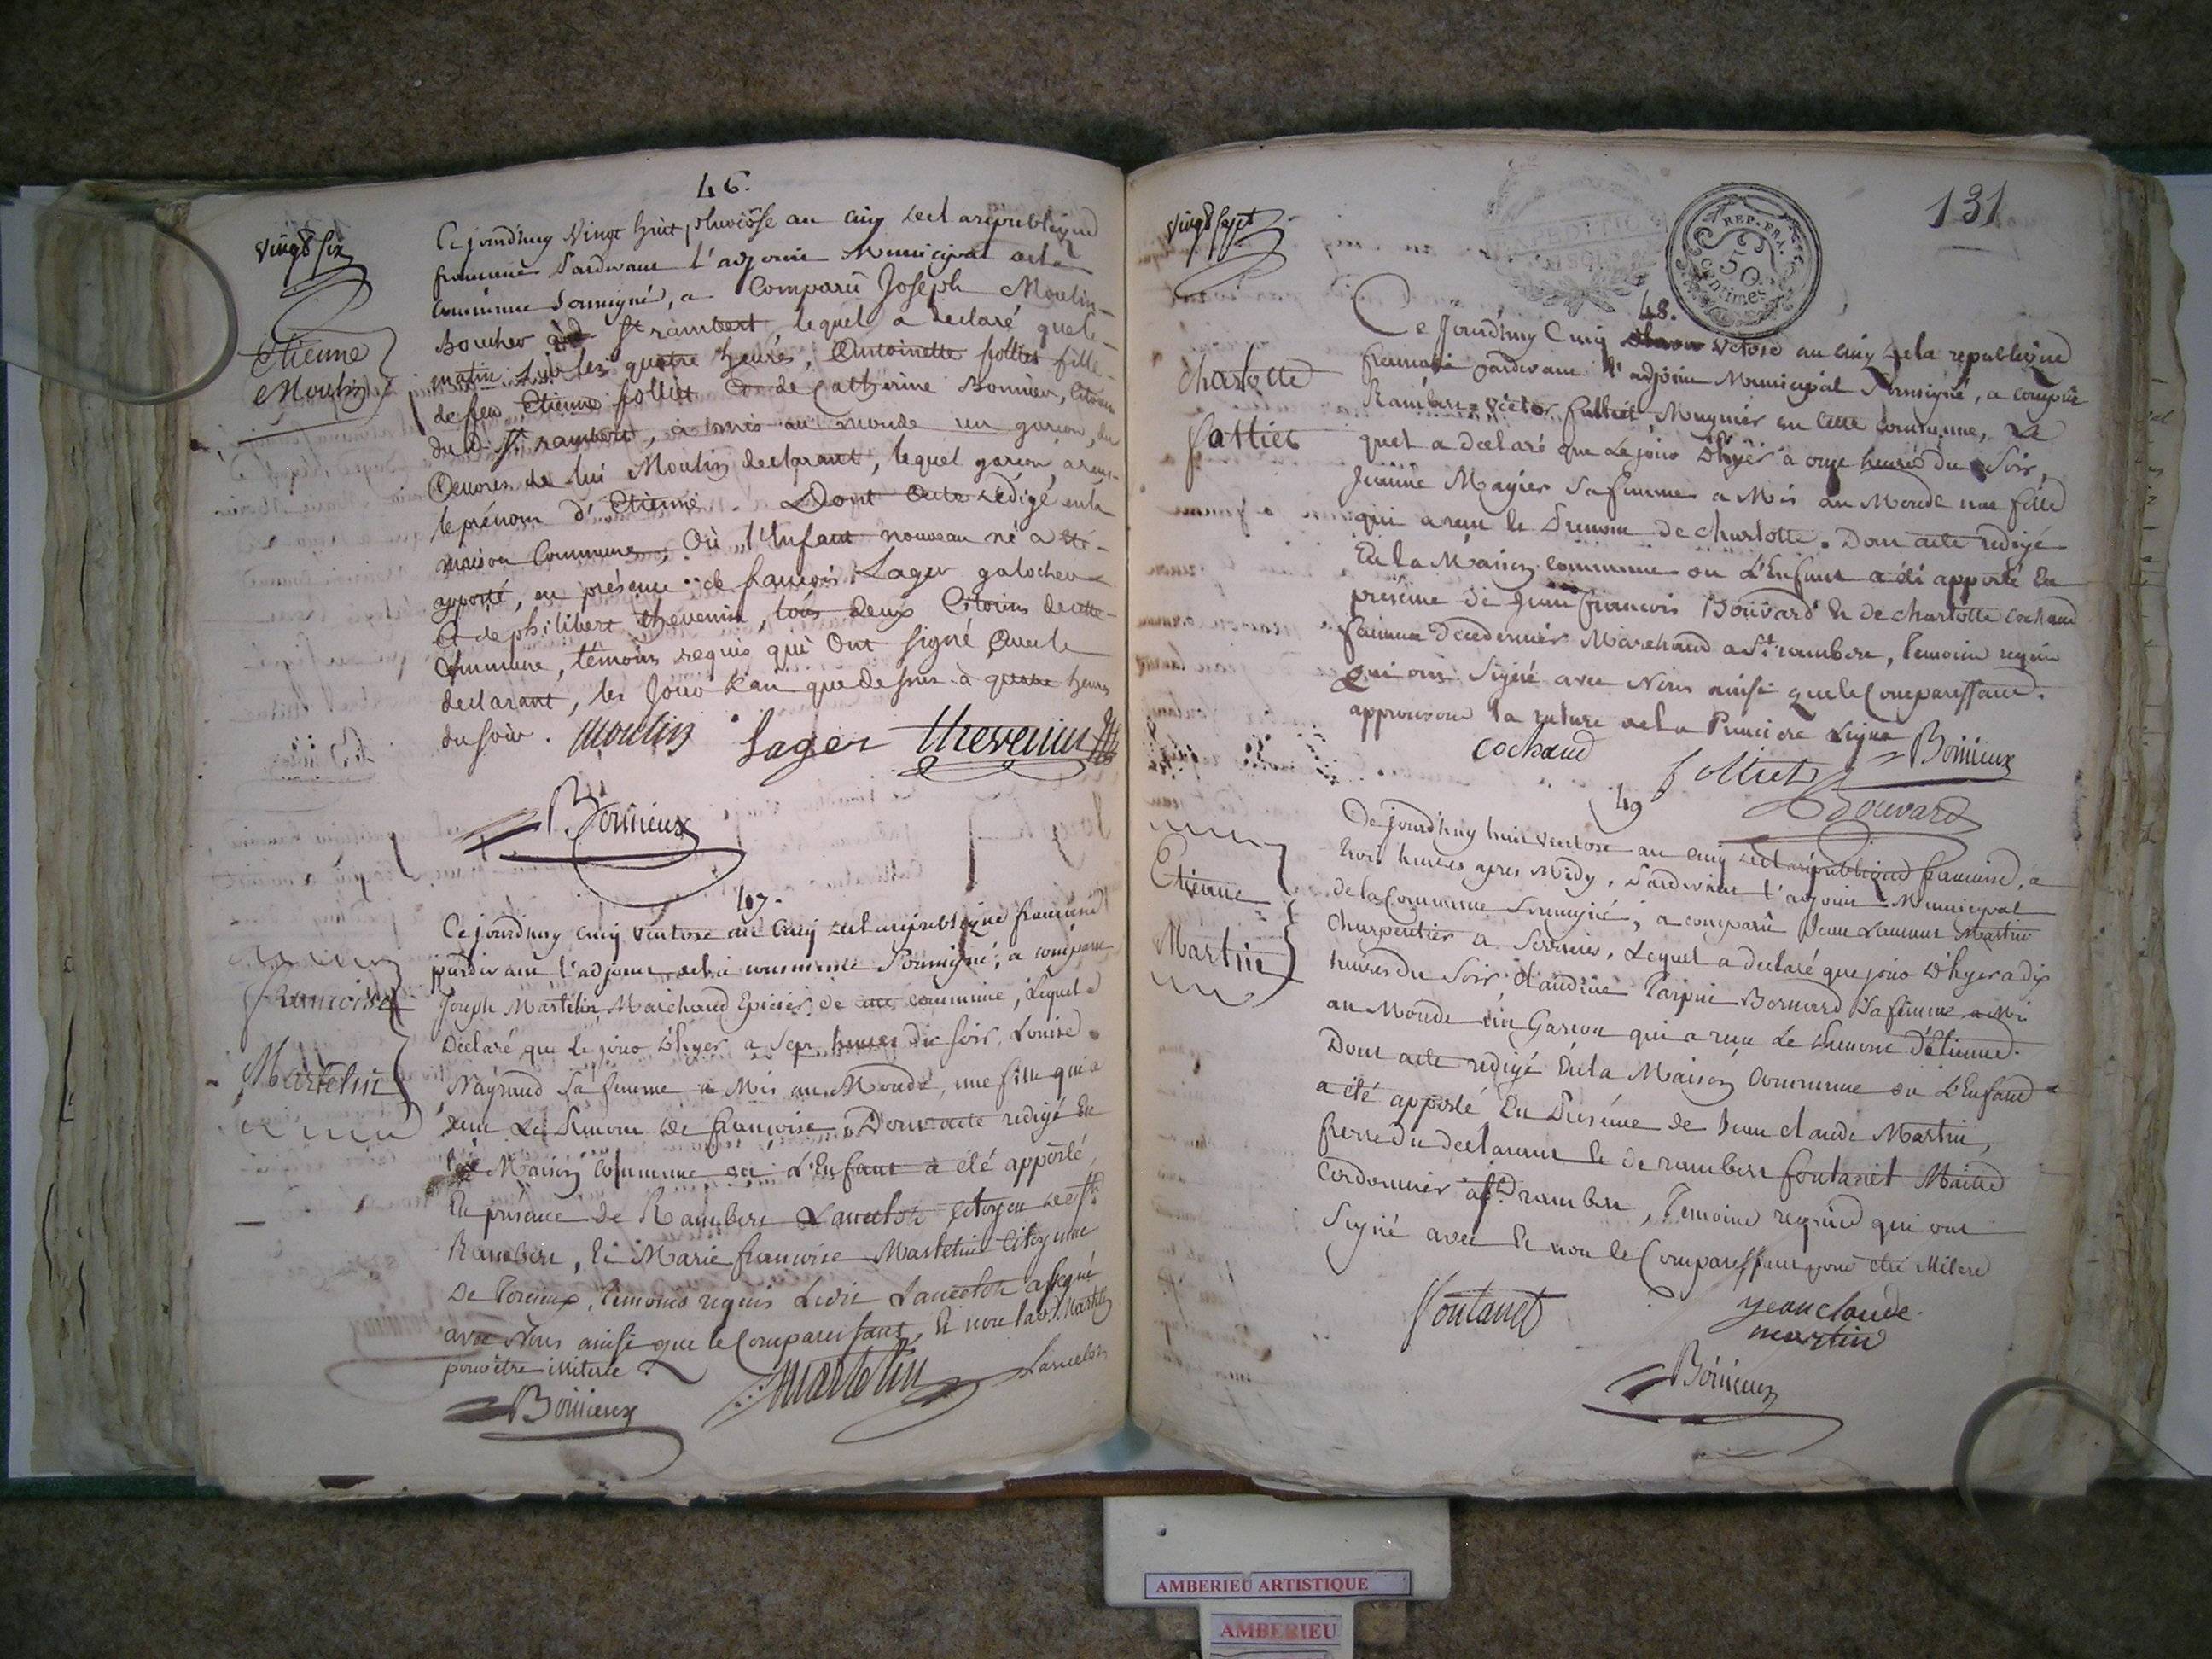 46.
vingt six
Etienne
Moulin
Ce jourdhuy Vingt huit pluviôse an cinq de la republique
francaise Pardevant l'adjoint Municipal de la
commune soussigné, a Comparu Joseph Moulin
Boucher à St rambert lequel a declaré que le
matin sur les quatre heures, Antoinette folliet fille
de feu Etienne folliet et de Catherine Bonnier, Citoien
du d. St rambert, a mis au monde un garcon, des
Oeuvres de lui Moulin declarant, lequel garcon a reçu
le prénom d'Etienne. Dont Acte redigé en la
maison Commune, Où l'Enfant nouveau né a été
apporté, en présence de francois Lager galocher
Et de philibert thevenin, tous deux Citoiens de cette
Commune, témoins requis qui Ont signé avec le
declarant, les Jour & an que dessus à quatre heures
du soir. Moulin Lager thevenin
Bonnieux
47.
francoise
Martelin
Ce jourdhuy cinq Ventose an cinq de la republique francaise
pardevant l'adjoint de la commune Soussigné, a comparu
Joseph Martelin Marchand Epicier de cette commune, Lequel a
Déclaré que Le jour D'hyer a Sept heures du soir, Louise
Naynaud Sa femme a Mis au Monde, une fille qui a
reçu Le Prenom De francoise, Dont acte redigé En
la Maison Commune ou L'Enfant a été apporté,
En présence de Rambert Lancelot Citoyen de St
Rambert, Et Marie francoise Martelin Citoyenne
De Torcieux, Temoins requis Ledit Lancelot a signé
avec Nous ainsi que le Comparaissant, Et non lad. Martelin
pour être illiterée
Bonnieux Martelin Lancelot
131
REP. FRA.
50
centimes
vingt sept
48.
Charlotte
folliet
Ce Jourdhuy Cinq Vetose an cinq de la republique
francaise Pardevant l'adjoint Municipal Soussigné, a comparu
Rambert-Victor Folliet, Meynier en cette commune, Le
quel a declaré que Le jour D'hyer à onze heures du Soir,
Jeanne Magier Sa femme a Mis au Monde une fille
qui a reçu le Prenom de Charlotte. Dont acte redigé
En la Maison commune ou L'Enfant a été apporté En
presence de Jean francois Bouvard Et de charlotte cochaud
femme De ce dernier Marchand a St rambert, Temoins requis
Qui ont Signé avec Nous ainsi que le Comparaissant.
approuvons la rature de la Premiere Ligne
cochaud folliet Bonnieux
Bouvard
49
Etienne
Martin
Ce jourd'huy huit Ventose an cinq de la republique francaise, a
trois heures apres Midy, Pardevant l'adjoint Municipal
de la Commune Soussigné, a comparu Jean Laurent Martin
Charpentier a Serrieres, Lequel a declaré que jour D'hyer a dix
heures du Soir, Claudine Bernard Sa femme a Mis
au Monde un Garcon qui a reçu Le Prenom D'Etienne.
Dont acte redigé En la Maison Commune ou L'Enfant
a été apporté En Presence de Jean claude Martin,
frere du declarant Et de rambert fontanet Maitre
Cordonnier a St rambert, Temoins requis qui ont
Signé avec Et non le Comparaissant pour être Illiteré
fontanet
jean claude
martin
Bonnieux
AMBERIEU ARTISTIQUE
AMBERIEU